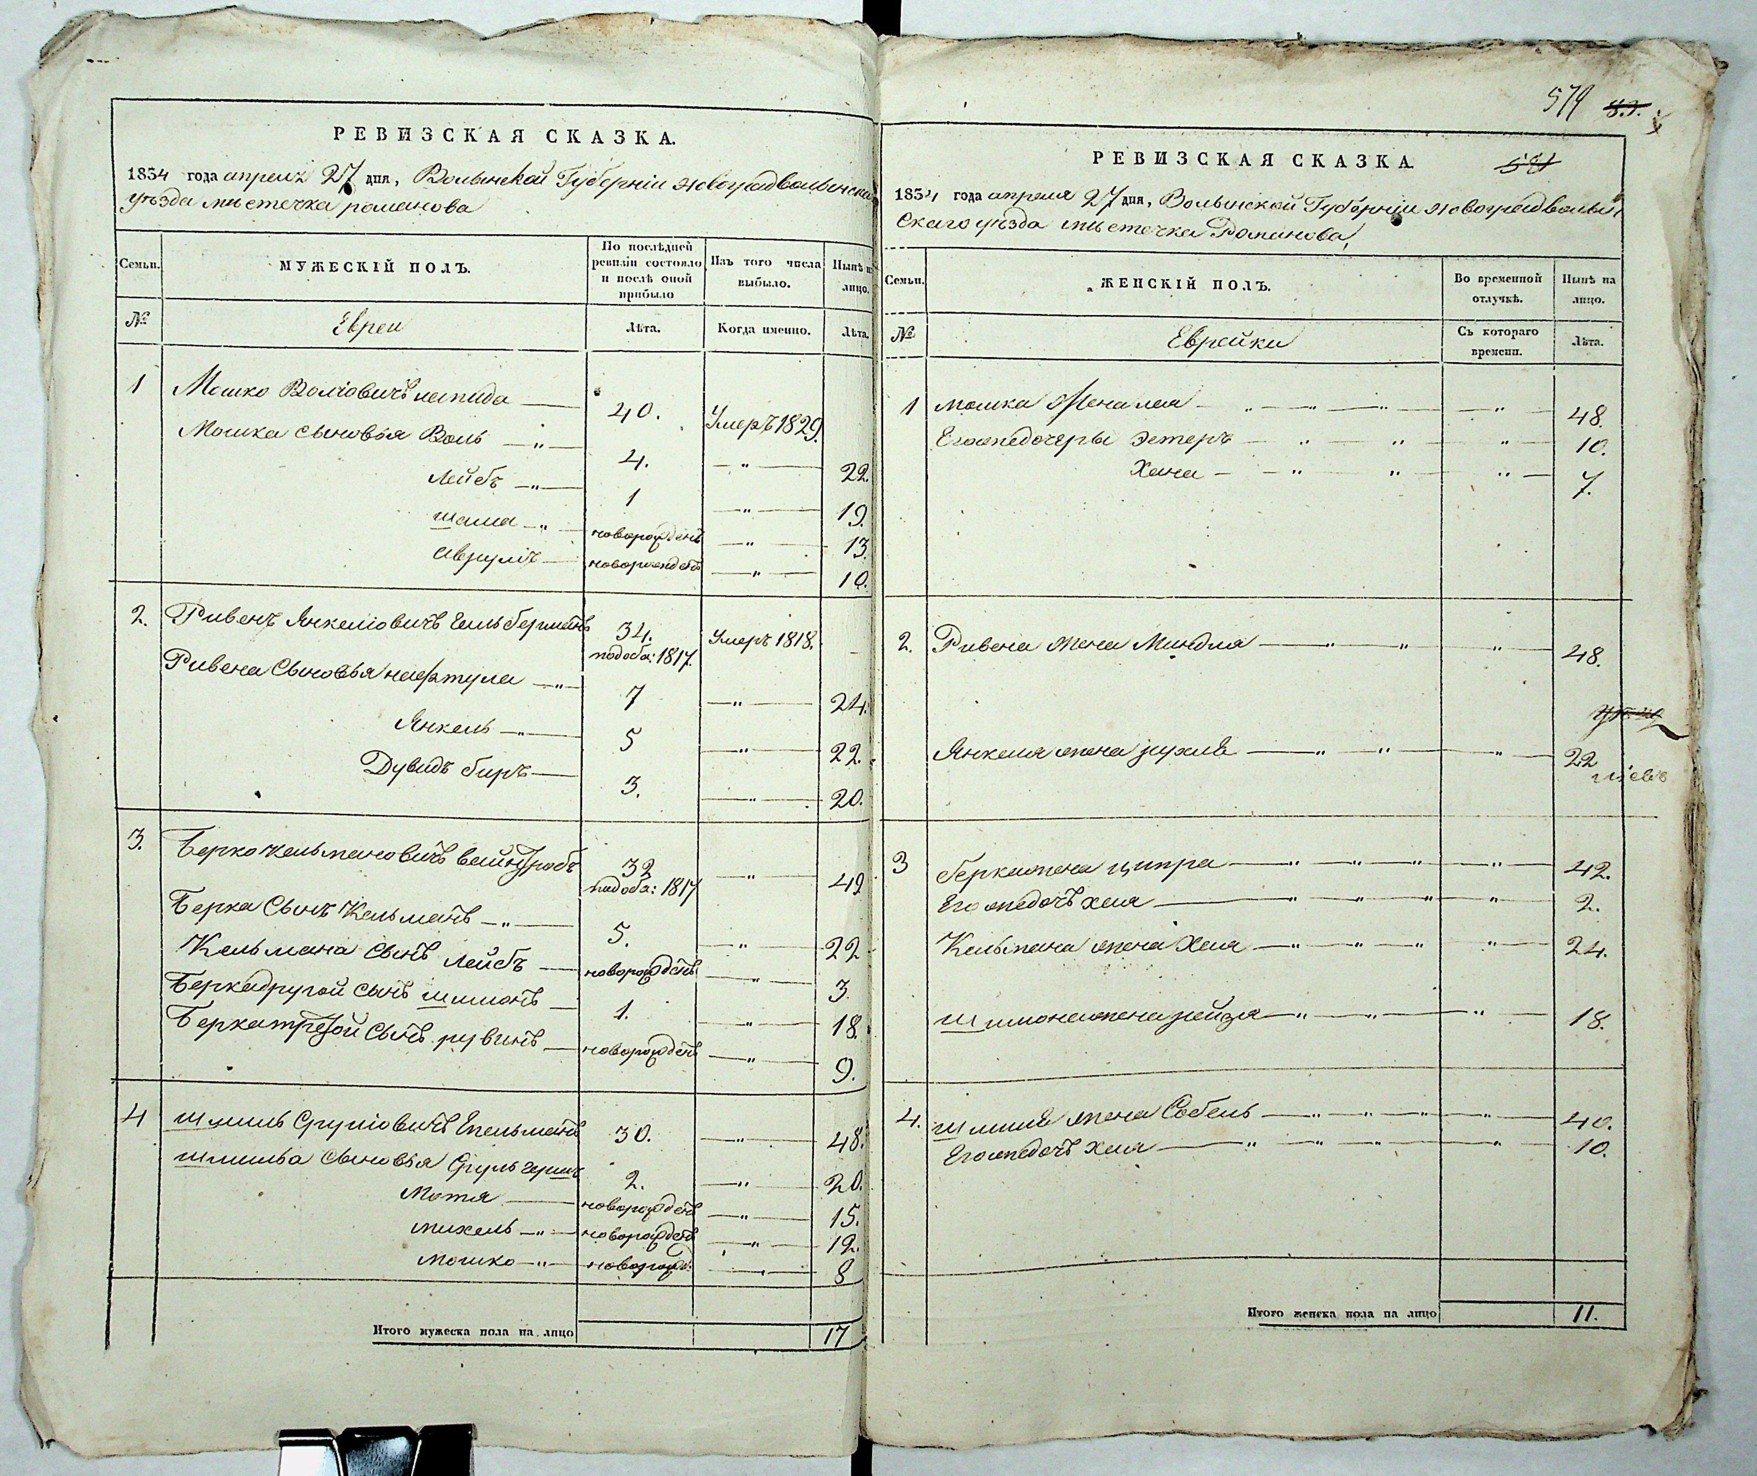 РЕВИЗСКАЯ СКАЗКА.
1834 года апреля 27 дня, Волынской Губерніи Новоградволынскаго
уѣзда мѣстечка романова
Семьи.
МУЖЕСКІЙ ПОЛЪ.
По послѣдней
ревизіи состояло
и послѣ оной
прибыло
Изъ того числа
выбыло.
Нынѣ на
лицо.
№
Евреи
Лѣта.
Когда именно.
Лѣта.
1 Мошко Воліовичъ лапида — 40. Умеръ 1829.
Мошка сыновья Воль — " — 4. — " — 22.
Лейбъ — " — 1 — " — 19.
шама — " — новорожденъ — " — 13.
Аврумъ — новорожденъ — " — 10.
2. Рувенъ Янкеліовичъ Гельберманъ 34. Умеръ 1818. —
1817.
Рувена Сыновья нафтула — " — 7 — " — 24.
Янкель — " — 5 — " — 22.
Дувидъ беръ — 3. — " — 20.
3. Берко Кельмановичъ вайнгробъ 32 — " — 49
1817
Берка Сынъ Кельманъ — " — 5. — " — 22
Кельмана Сынъ Лейбъ — новорожденъ — " — 3.
Берка другой сынъ шмионъ — 1. — " — 18.
Берка третой Сынъ рувинъ — новорожденъ — " — 9.
4 шмиль Сруліовичъ 30. — " — 48.
Сыновья Сруль гершъ 2. — " — 20.
Мотя — новорожденъ — " — 15.
михель — " — новорожденъ — " — 12.
мошко — " — новорожд. — " — 8
Итого мужеска пола на лицо 17
579 83.
581
РЕВИЗСКАЯ СКАЗКА.
1834 года апреля 27 дня, Волынской Губерніи Новоградволын
скаго уѣзда мѣстечка Романова,
Семьи.
ЖЕНСКІЙ ПОЛЪ.
Во временной
отлучкѣ.
Нынѣ на
лицо.
№
Еврейки
Съ котораго
времени.
Лѣта.
1 мошка Жена лея — " — " — " — " — 48.
Его жедочеры Эстеръ — " — " — " — 10.
Хана — " — " — " — 7.
2. Рувена жена Миндля — " — " — " — 48.
Янкеля жена рухля — " — " — " — 22
3 Берка жена ципра — " — " — " — " — 42.
Его жедочъ хая — " — " — " — " — 2.
Кельмана жена Хая — " — " — " — " — 24.
шмиона жена рейзя — " — " — " — 18.
4. шмиля жена Собель — " — " — " — " — 40.
Его жедочъ хая — " — " — " — " — 10.
Итого женска пола на лицо 11.